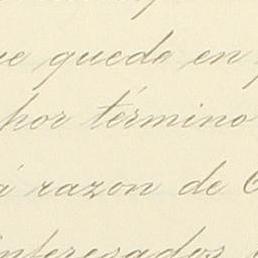 quede en
por término
á razon de
interesados